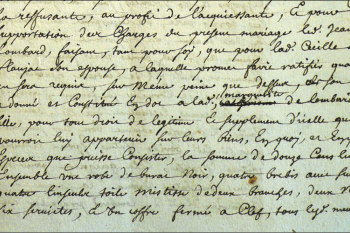 la refusante, au profit de lacquiessante, Et pour
supportation des Charges du present mariage led. Jean
Lombard, faisant, tant pour soy, que pour lad. Cecille de
son espouse, a laquelle promet faire ratifier quand
en sera requis, sur meme peine que dessus, de son
donné et Constitué En dot a lad. margueritte de lombard
fille pour tout droit de legitime Et suplement d'icelle que
pourroit luy appartenir sur leurs biens, En quoy, et En
Espece que puisse Consister, la somme de douze Cens
Ensemble une robe de burat Noir, quatre brebis aux
quatre linsuls toile mistisse de deux branches, deux
six serviettes, Et Un coffre fermé a Clef, tous lesd.